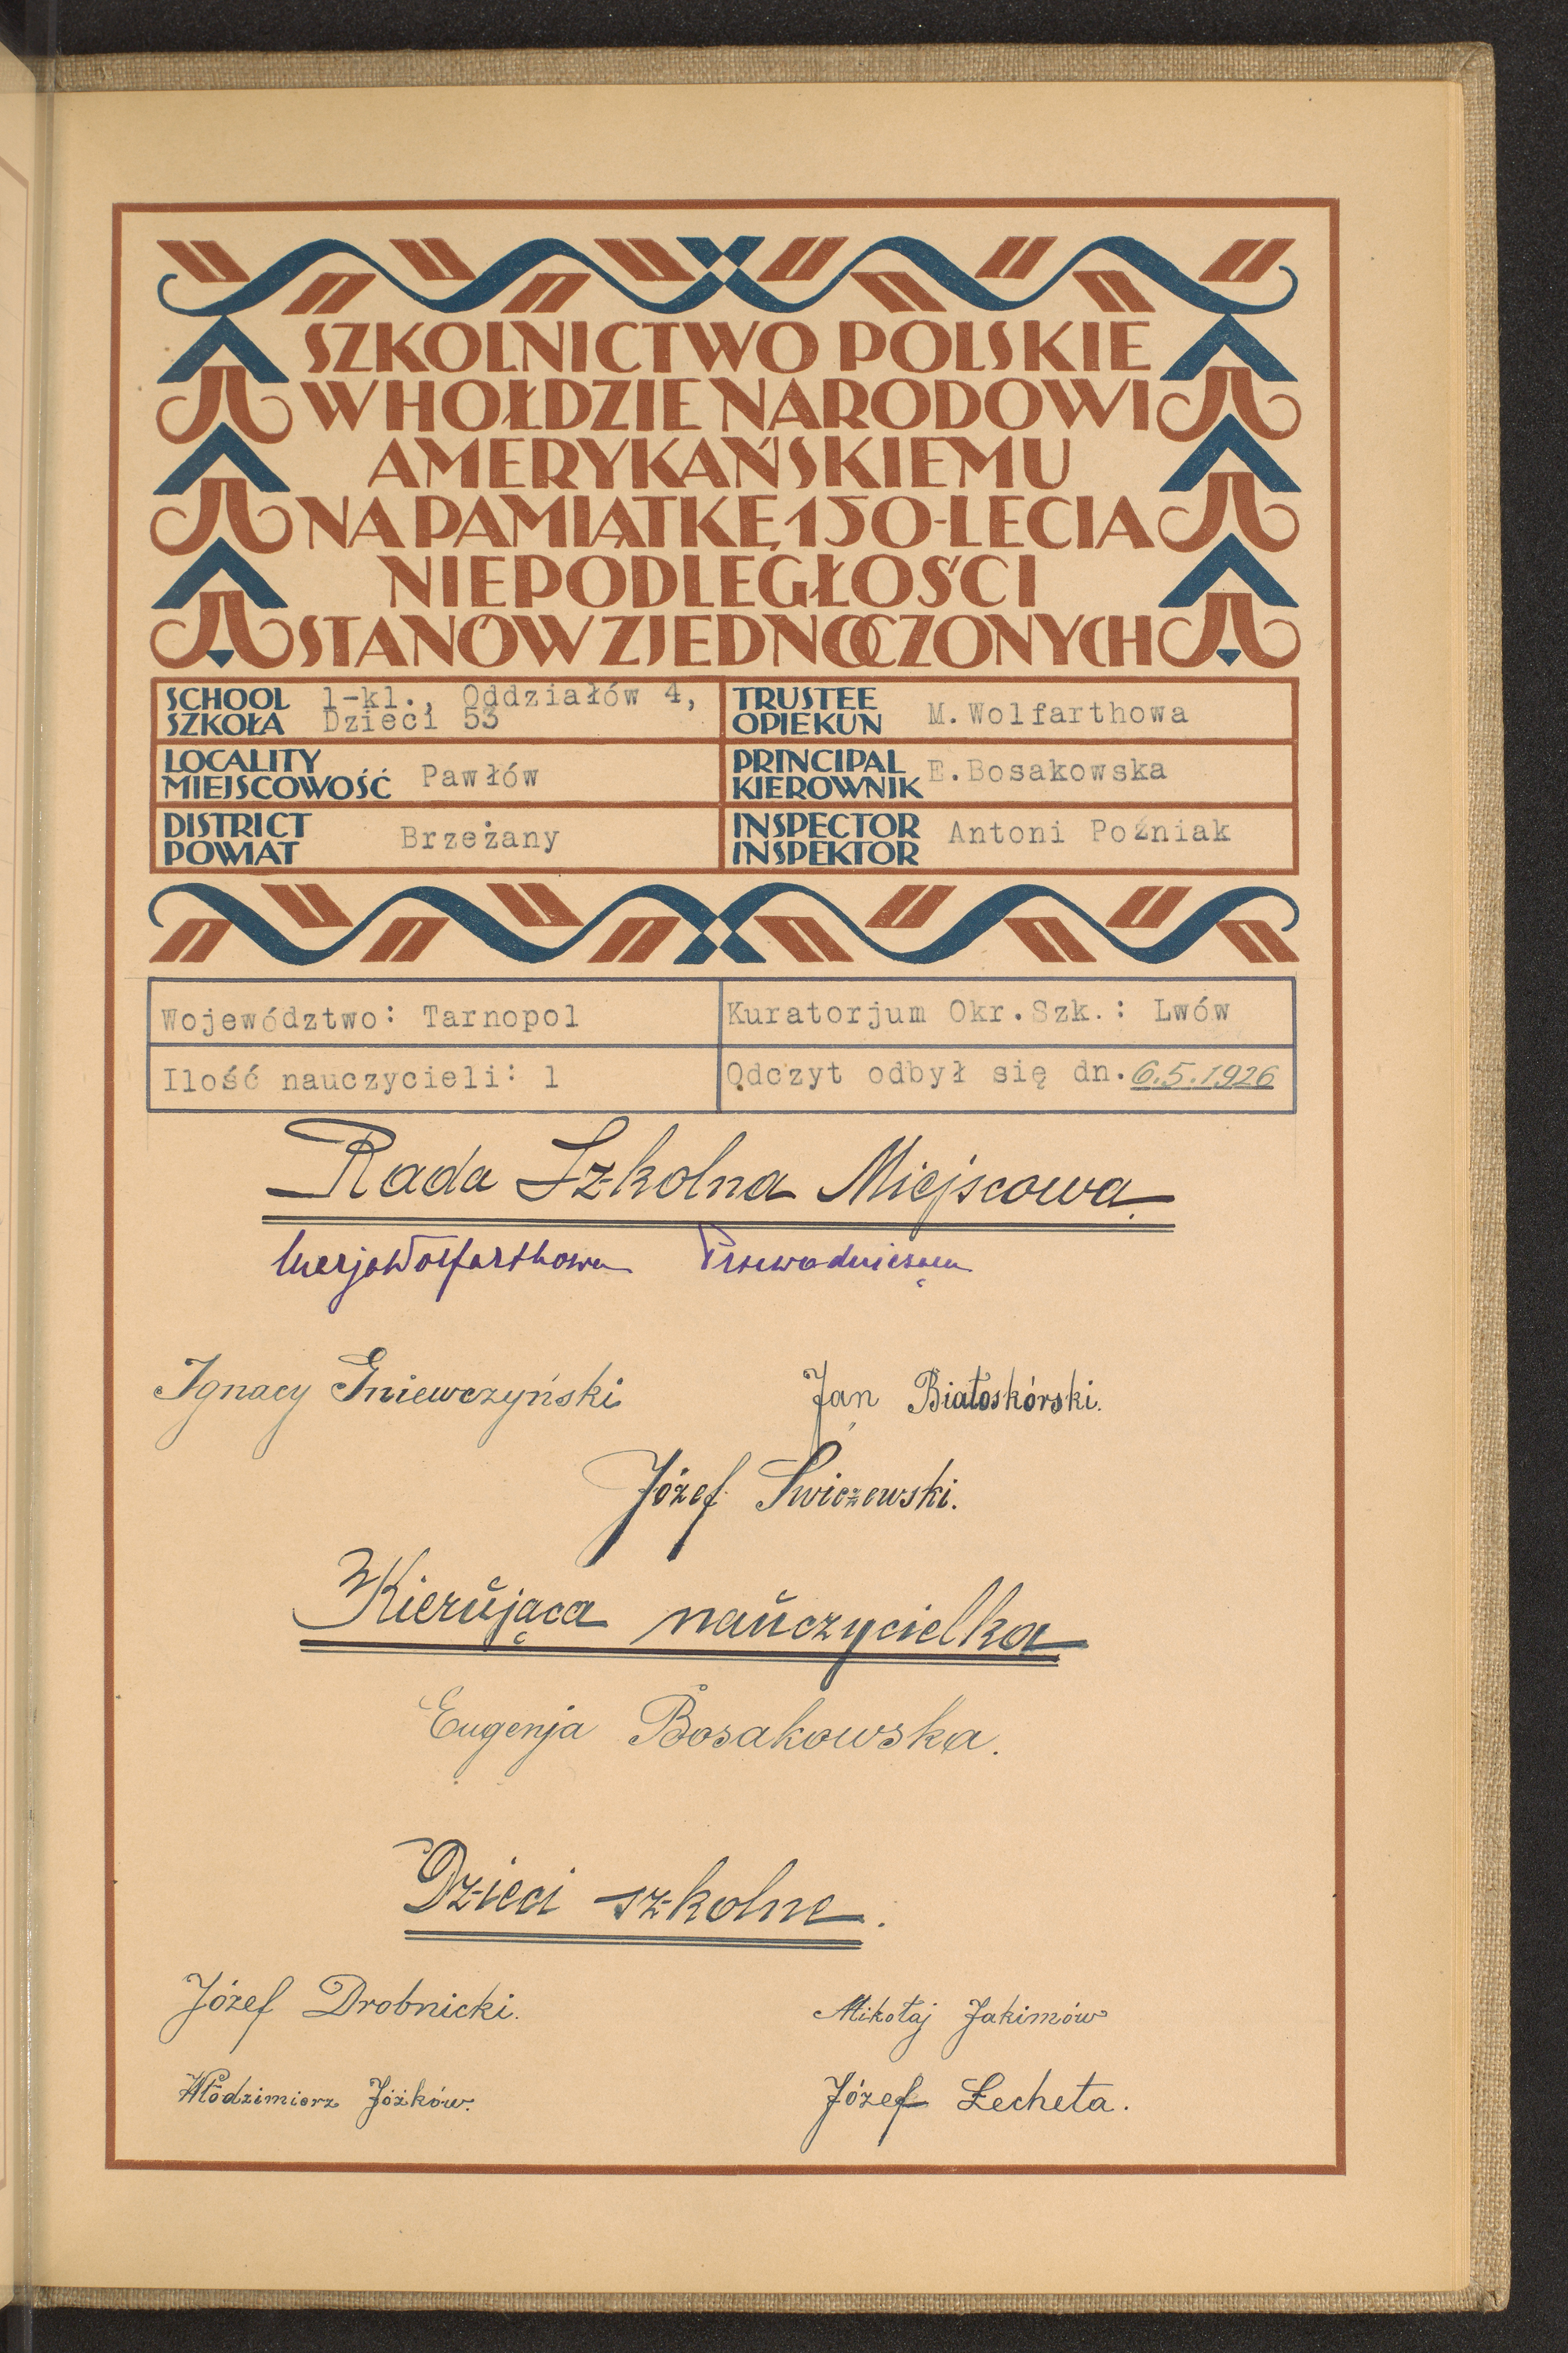 SZKOLNICTWO POLSKIE
W HOŁDZIE NARODOWI
AMERYKAŃSKIEMU
NA PAMIĄTKĘ 150-LECIA
NIEPODLEGŁOŚCI
STANÓW ZJEDNOCZONYCH
SCHOOL
SZKOŁA
1-kl., Oddziałów 4,
Dzieci 53
TRUSTEE
OPIEKUN
M.Wolfarthowa
LOCALITY
MIEJSCOWOŚĆ
Pawłów
PRINCIPAL
KIEROWNIK
E.Bosakowska
DISTRICT
POWIAT
Brzeżany
INSPECTOR
INSPEKTOR
Antoni Poźniak
Województwo: Tarnopol
Kuratorjum Okr.Szk.: Lwów
Ilość nauczycieli: 1
Odczyt odbył się dn. 6.5.1926
Rada Szkolna Miejscowa
Marja Wolfarthowa Przewodnicząca
Ignacy Gniewczyński
Jan Białoskórski.
Józef Swiczewski.
Kierująca nauczycielka
Eugenja Bosakowska.
Dzieci szkolne.
Józef Drobnicki.
Mikołaj Jakimów
Włodzimierz Jóżków.
Józef Łecheta.